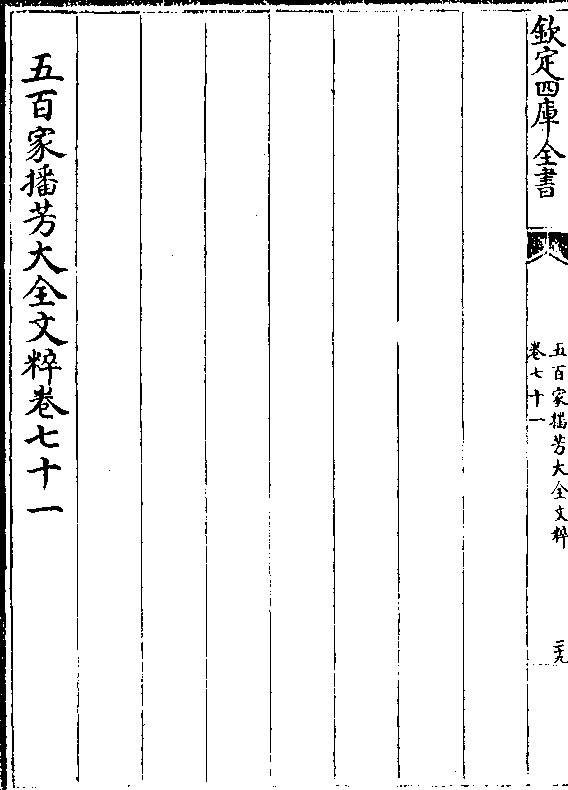 欽定四庫全書
五百家播芳大全文粹
卷七十一
二十九
五百家播芳大全文粹卷七十一